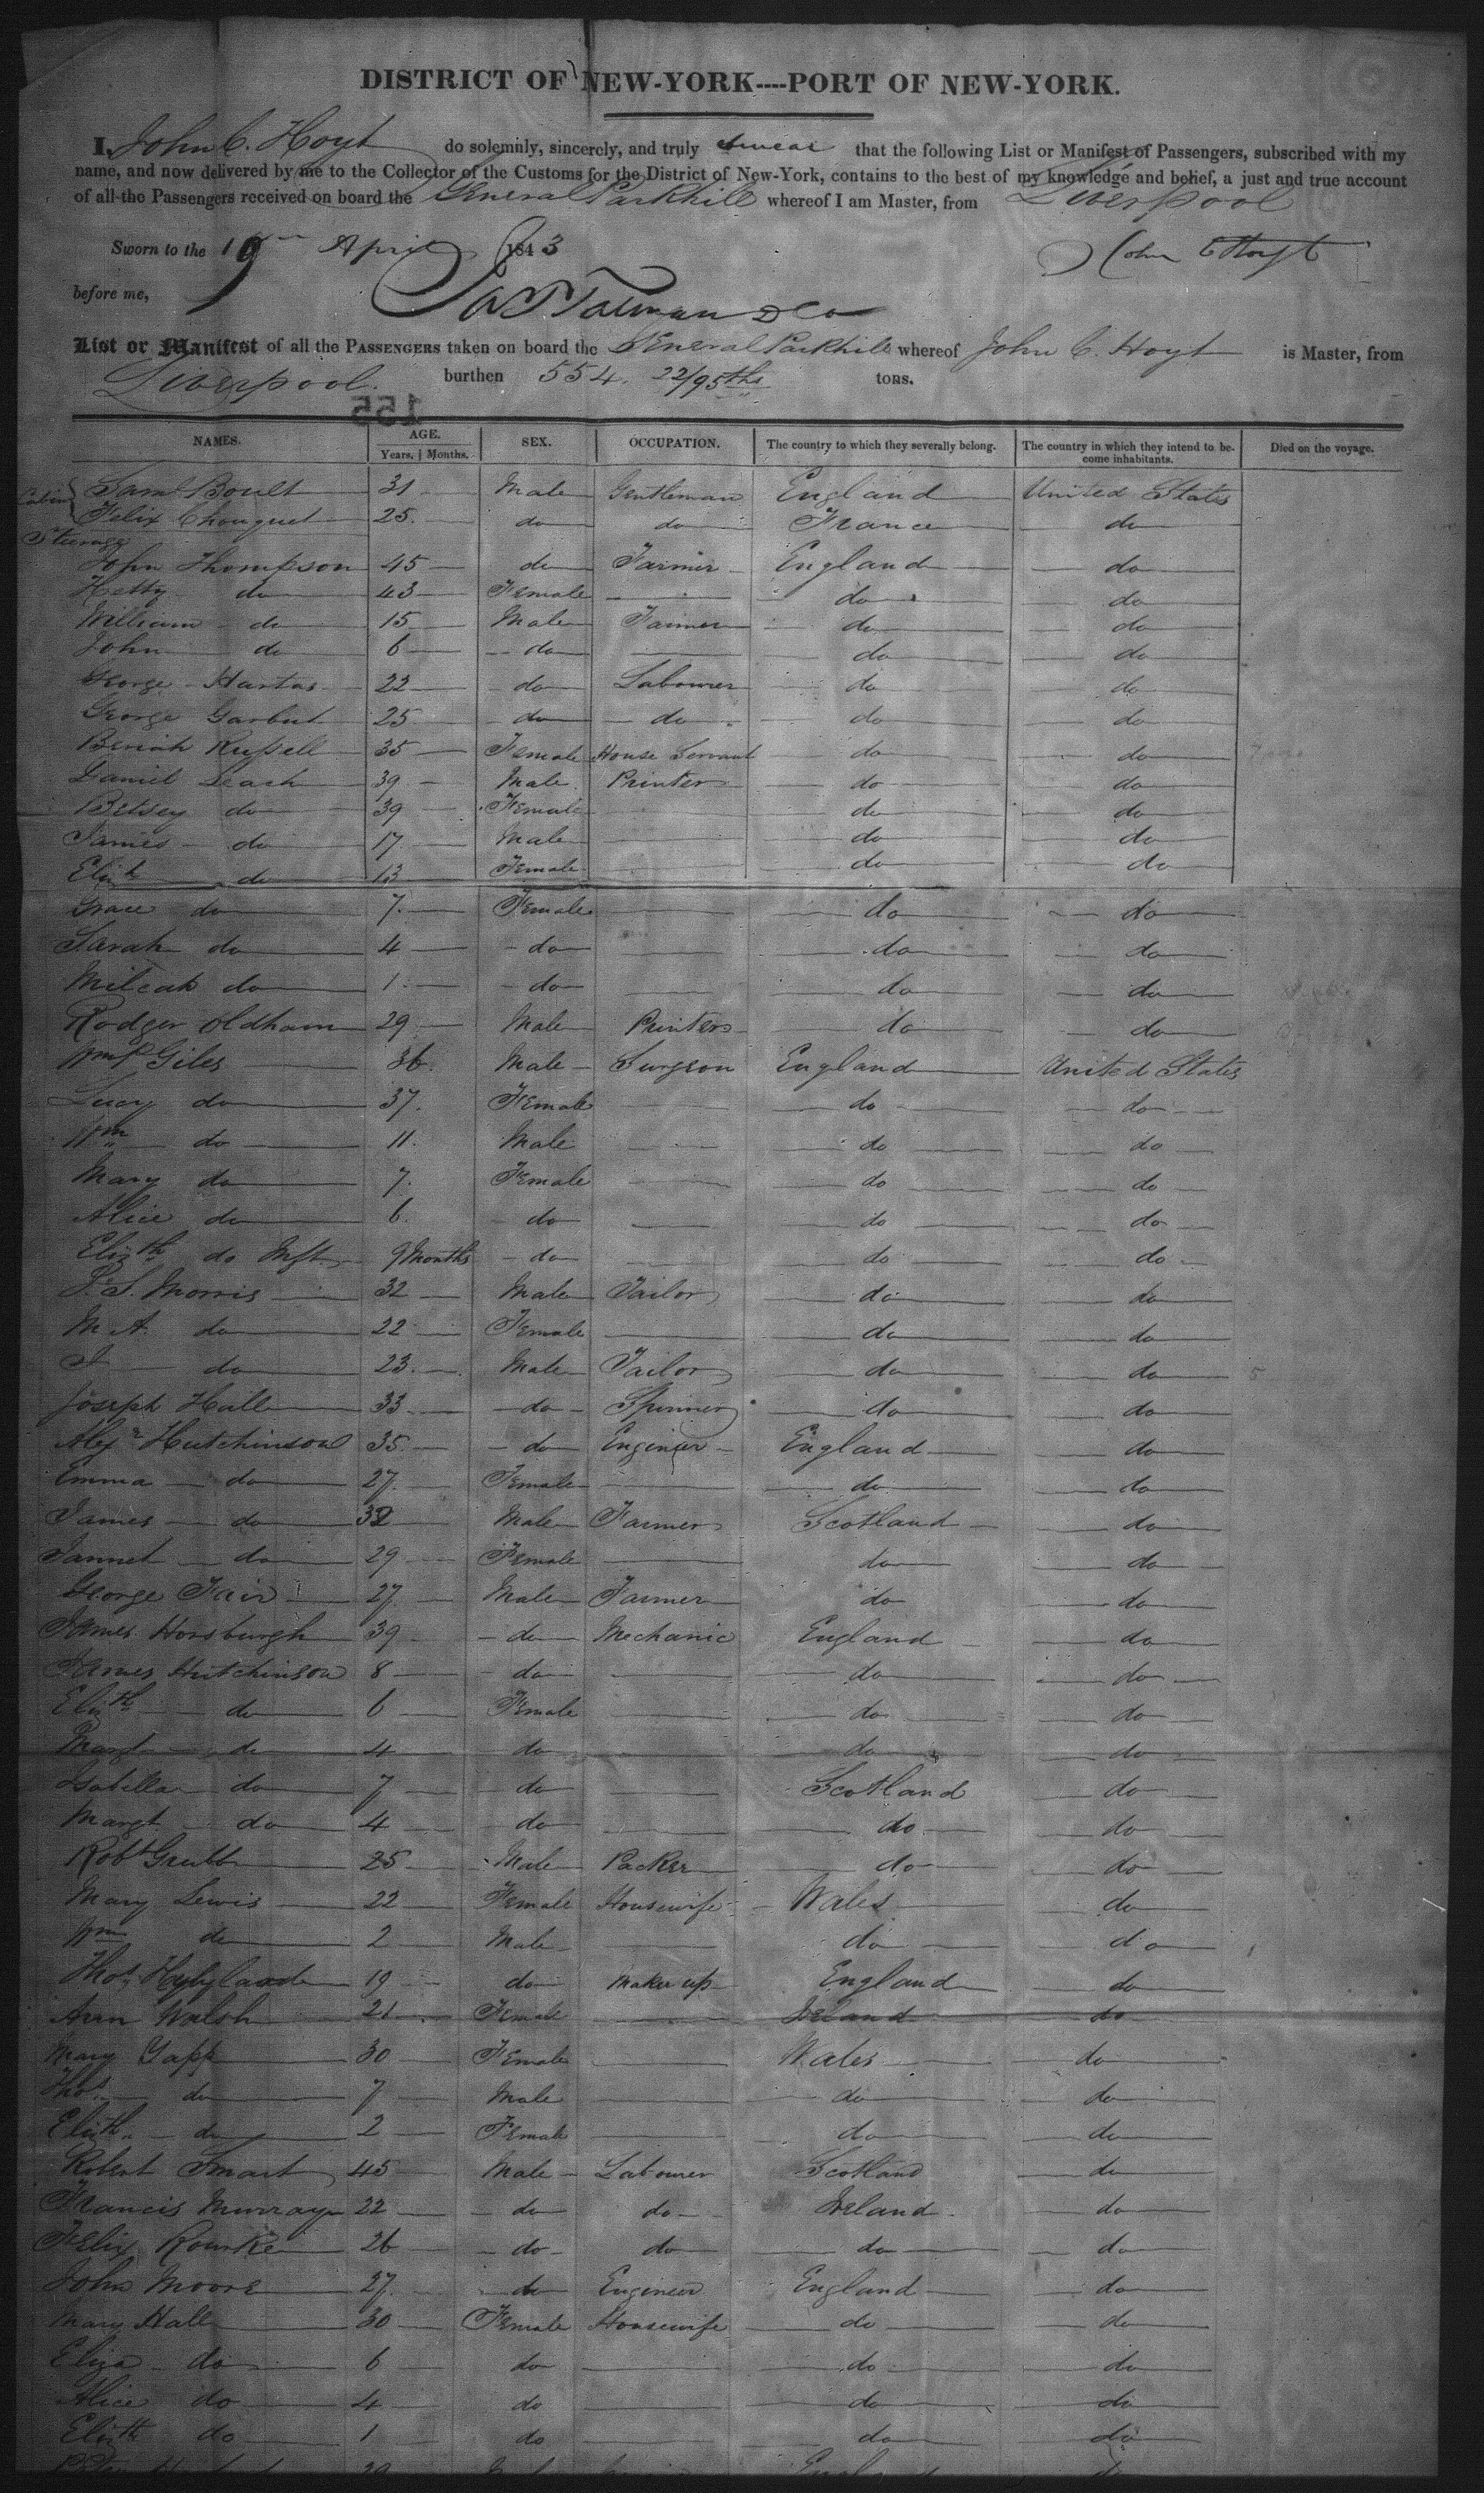 DISTRICT OF NEW-YORK----PORT OF NEW-YORK.
I, John C. Hoyt do solemnly, sincerely, and truly swear that the following List or Manifest of Passengers, subscribed with my
name, and now delivered by me to the Collector of the Customs for the District of New-York, contains to the best of my knowledge and belief, a just and true account
of all the Passengers received on board the General Parkhill whereof I am Master, from Liverpool
Sworn to the 19 April 1843 John C Hoyt
before me,
List or Manifest of all the PASSENGERS taken on board the General Parkhill whereof John C. Hoyt is Master, from
Liverpool. burthen 554. 22/95ths tons.
155
NAMES. AGE. SEX. OCCUPATION. The country to which they severally belong. The country in which they intend to be- Died on the voyage.
Years. Months. come inhabitants.
Cabin Saml Boult 31 Male Gentleman England United States
Felix Chouquet 25. do do France do
Steerage
John Thompson 45 do Farmer England do
Hetty do 43 Female do do
William do 15 Male Farmer do do
John do 6 do do do
George Hartas 22 do Labourer do do
George Garbut 25 do do do do
Beriah Russell 35 Female House Servant do do
Daniel Leach 39 Male Printer do do
Betsey do 39 Female do do
James do 17 Male do do
Elizh do 13 Female do do
Grace do 7. Female do do
Sarah do 4 do do do
Milcah do 1 do do do
Rodger Oldham 29 Male Printer do do
Wm P Giles 36. Male Surgeon England United States
Lucy do 37. Female do do
Wm do 11. Male do do
Mary do 7. Female do do
Alice do 6. do do do
Elizth do Inft 9 Months do do do
S. Morris 32 Male Tailor do do
M A. do 22 Female do do
do 23. Male Tailor do do
Joseph Hall 33 do Spinner do do
Alexr Hutchinson 35. do Engineer England do
Emma do 27. Female do do
James do 32 Male Farmer Scotland do
Jannet do 29 Female do do
George Fair 27. Male Farmer do do
James Horsburgh 39 do Mechanic England do
James Hutchinson 8 do do do
Elizth do 6 Female do do
Margt do 4 do do do
Isabella do 7 do Scotland do
Margt do 4 do do do
Robt Grubb 25 Male Packer do do
Mary Lewis 22 Female Housewife Wales do
Wm do 2 Male do do
Thos 19 do Maker up England do
Ann Walsh 21 Female Ireland do
Mary Yapp 30 Female Wales do
Thos do 7 Male do do
Elizth do 2 Female do do
Robert Smart 45 Male Labourer Scotland do
Francis Murray 22 do do Ireland do
Felix Rourke 26 do do do do
John Moore 27. do Engineer England do
Mary Hall 30 Female Housewife do do
Eliza do 6 do do do
Alice do 4 do do do
Elizth do 1 do do do